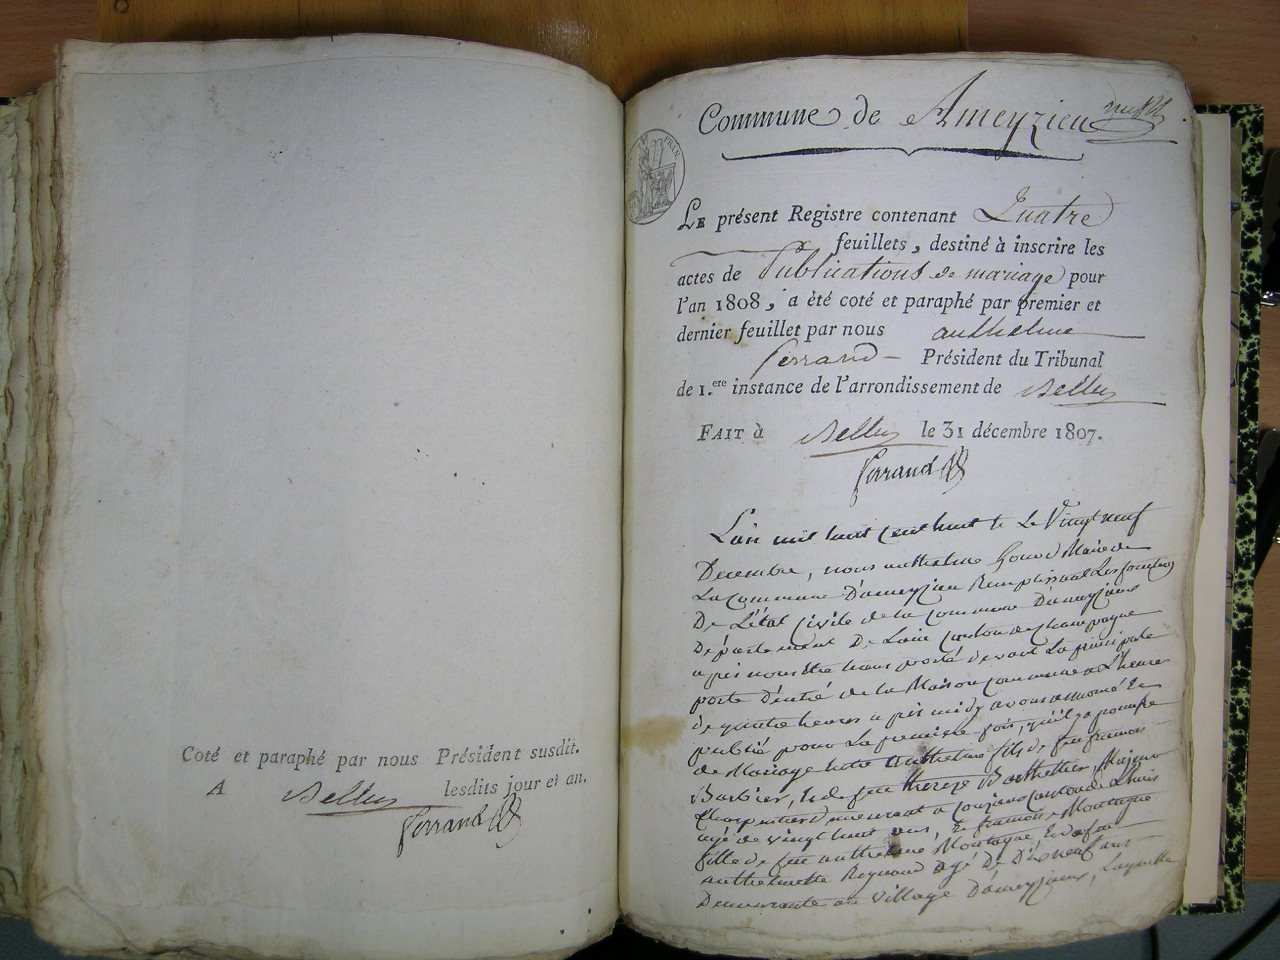 Coté et paraphé par nous Président susdit.
A Belley lesdits jour et an.
Ferrand
Commune de Ameyzieu
LE présent Registre contenant Quatre
feuillets, destiné à inscrire les
actes de Publications de mariage pour
l'an 1808, a été coté et paraphé par premier et
dernier feuillet par nous anthelme
Ferrand Président du Tribunal
de 1.ere instance de l'arrondissement de Belley
FAIT à Belley le 31 décembre 1807.
Ferrand
L'an mil huit cent huit & Le Vingt neuf
Decembre, nous anthelme Maire de
La Commune D'ameyzieu Remplissant Les fonctions
De L'état Civile de la commune D'ameyzieu
Département De Lain Canton de Champagne
apres nous être transporté devant La principale
porte D'entré de la Maison Commune a L'heure
de quatre heures apres midy avons annoncé Et
publié pour La premiere fois, qu'il y a promesse
de Mariage entre Anthelme fils de feu francois
Barbier, & de feu thereze Berthellier, Majeur
Charpentier Demeurant a Canton de
agé de vingt huit ans, Et francoise Montagne
fille de feu anthelme Montagne Et de feu
anthelmette Reynaud agé De Dixneuf ans
Demeurante au Village D'ameyzieux, Laquelle